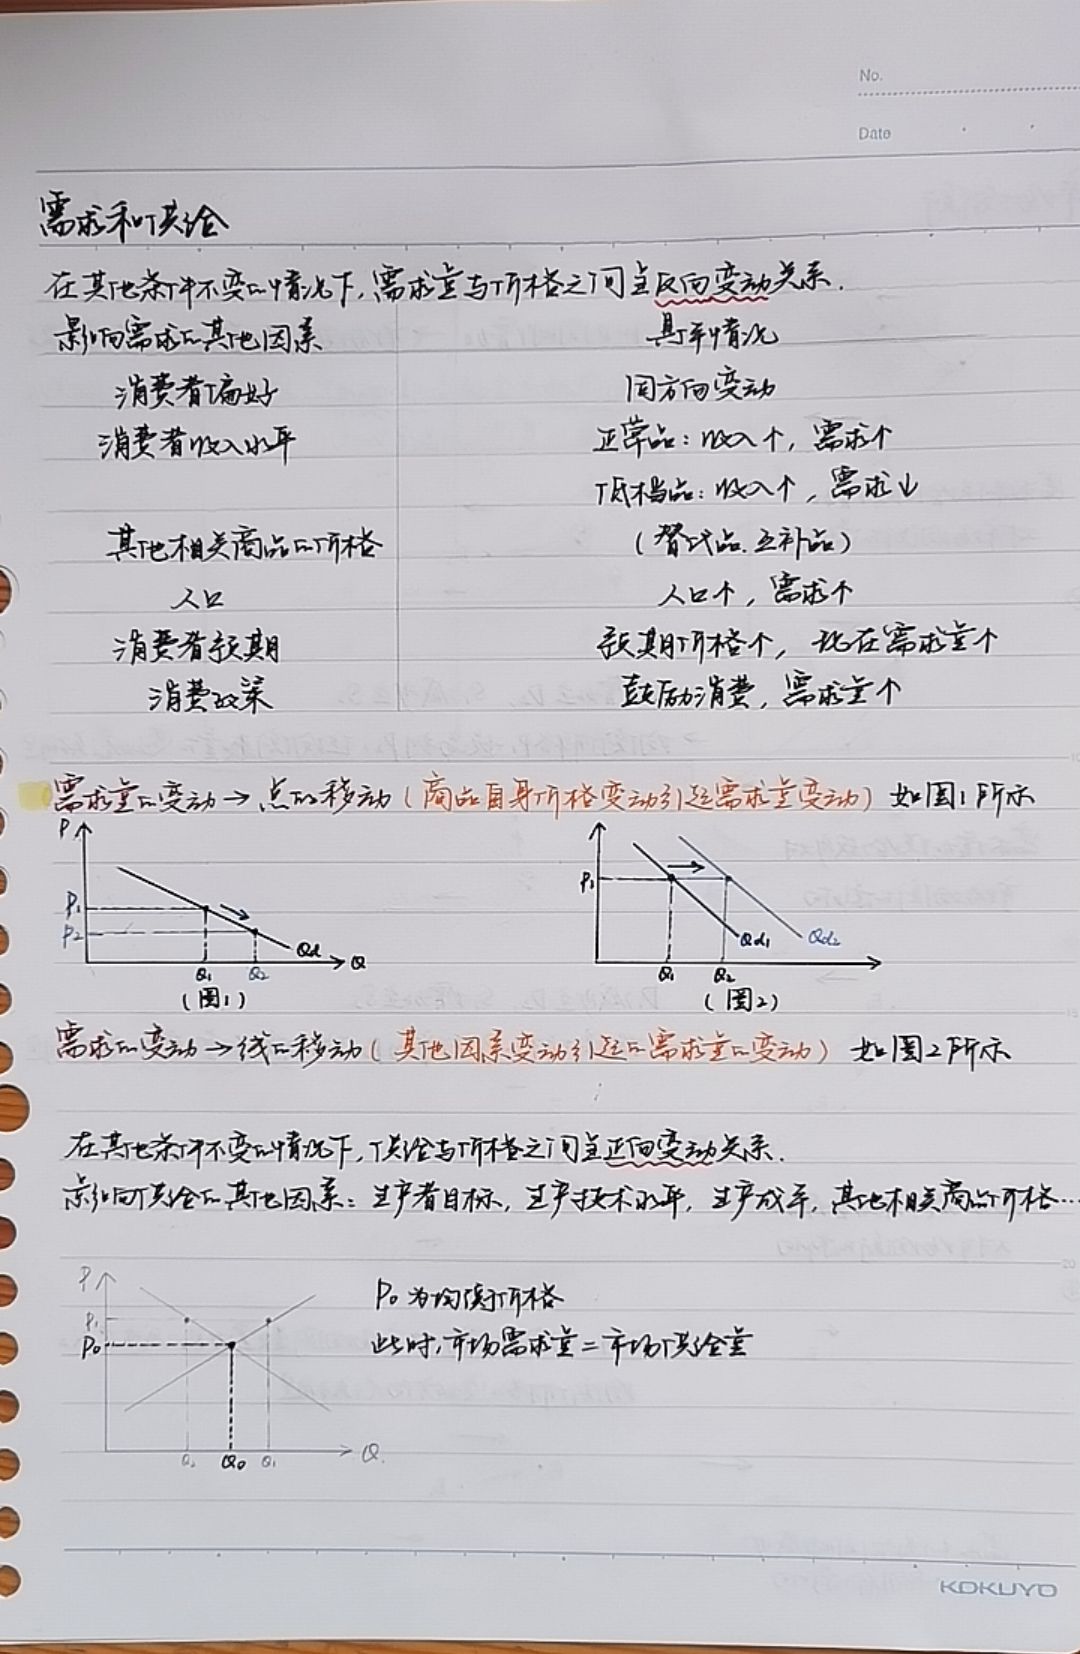 No.
Date
需求和供给
在其他条件不变的情况下,需求量与价格之间呈反向变动关系.
影响需求的其他因素 具体情况
消费者偏好 同方向变动
消费者收入水平 正常品:收入个,需求个
低档品:收入个,需求↓
其他相关商品的价格 (替代品.互补品)
人口 人口个,需求个
消费者预期 预期价格个,现在需求量个
消费政策 鼓励消费,需求量个
需求量的变动→点的移动(商品自身价格变动引起需求量变动)如图1所示
P
P₁
P₂
Qd
Q
Q₁ Q₂
(图1)
P₁
Qd₁ Qd₂
Q₁ Q₂
(图2)
需求的变动→线的移动(其他因素变动引起的需求量的变动) 如图2所示
在其他条件不变的情况下,供给与价格之间呈正向变动关系.
影响供给的其他因素:生产者目标,生产技术水平,生产成本,其他相关商品价格…
P
P₁
P₀
Q₀ Q₁
Q
P₀为均衡价格
此时,市场需求量=市场供给量
KOKUYO